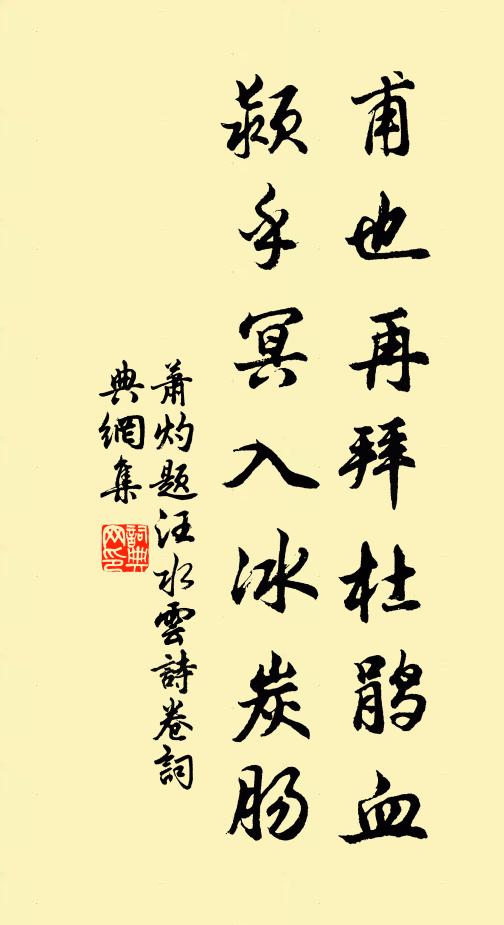 甫也再拜杜鹃血
颍乎冥入冰炭肠
萧灼题汪水雲詩卷詞
典網集
詞典
网印